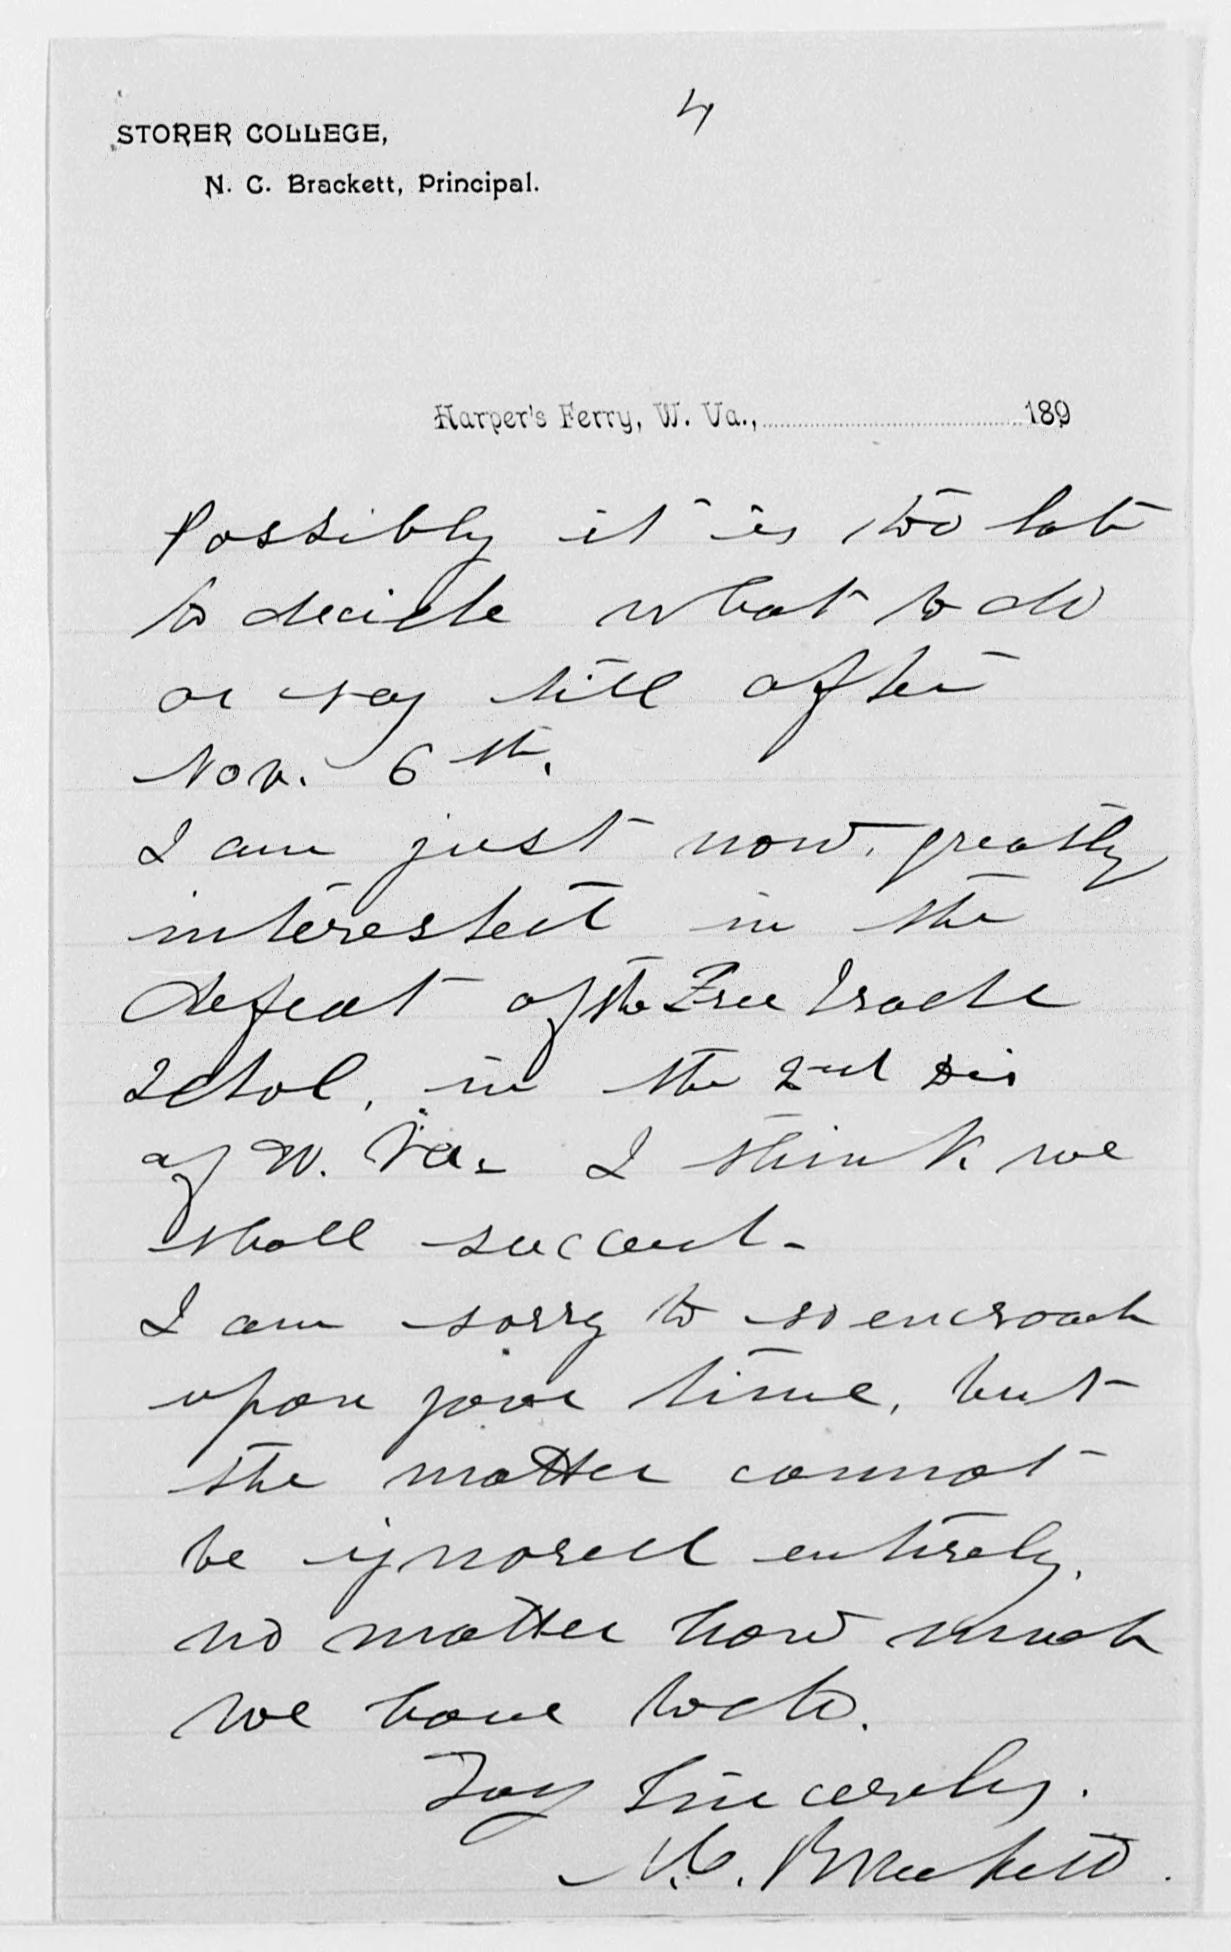 4
STORER COLLEGE,
N. C. Brackett, Principal.
Harper's Ferry, W. Va., 189
Possibly it is too late
to decide what to do
or say till after
Nov. 6th.
I am just now greatly
interested in the
defeat of the Free Trade
in the 2nd Dis
of W. Va. I think we
shall succeed.
I am sorry to so encroach
upon your time, but
the matter cannot
be ignored entirely,
no matter how much
we have to do.
Sincerely.
N. C. Brackett.